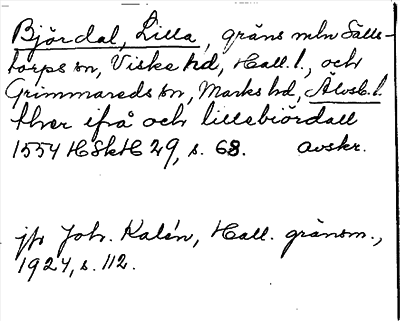 Björdal, Lilla, gräns mln Sälls-
torps sn, Viske hd, Hall. l., och
Grimmareds sn, Marks hd, Älvsb. l.
thær ifrå och lillebiördall
1554 HSkH 29, s. 68. avskr.
jfr Joh. Kalén, Hall. gränsm.,
1924, s. 112.